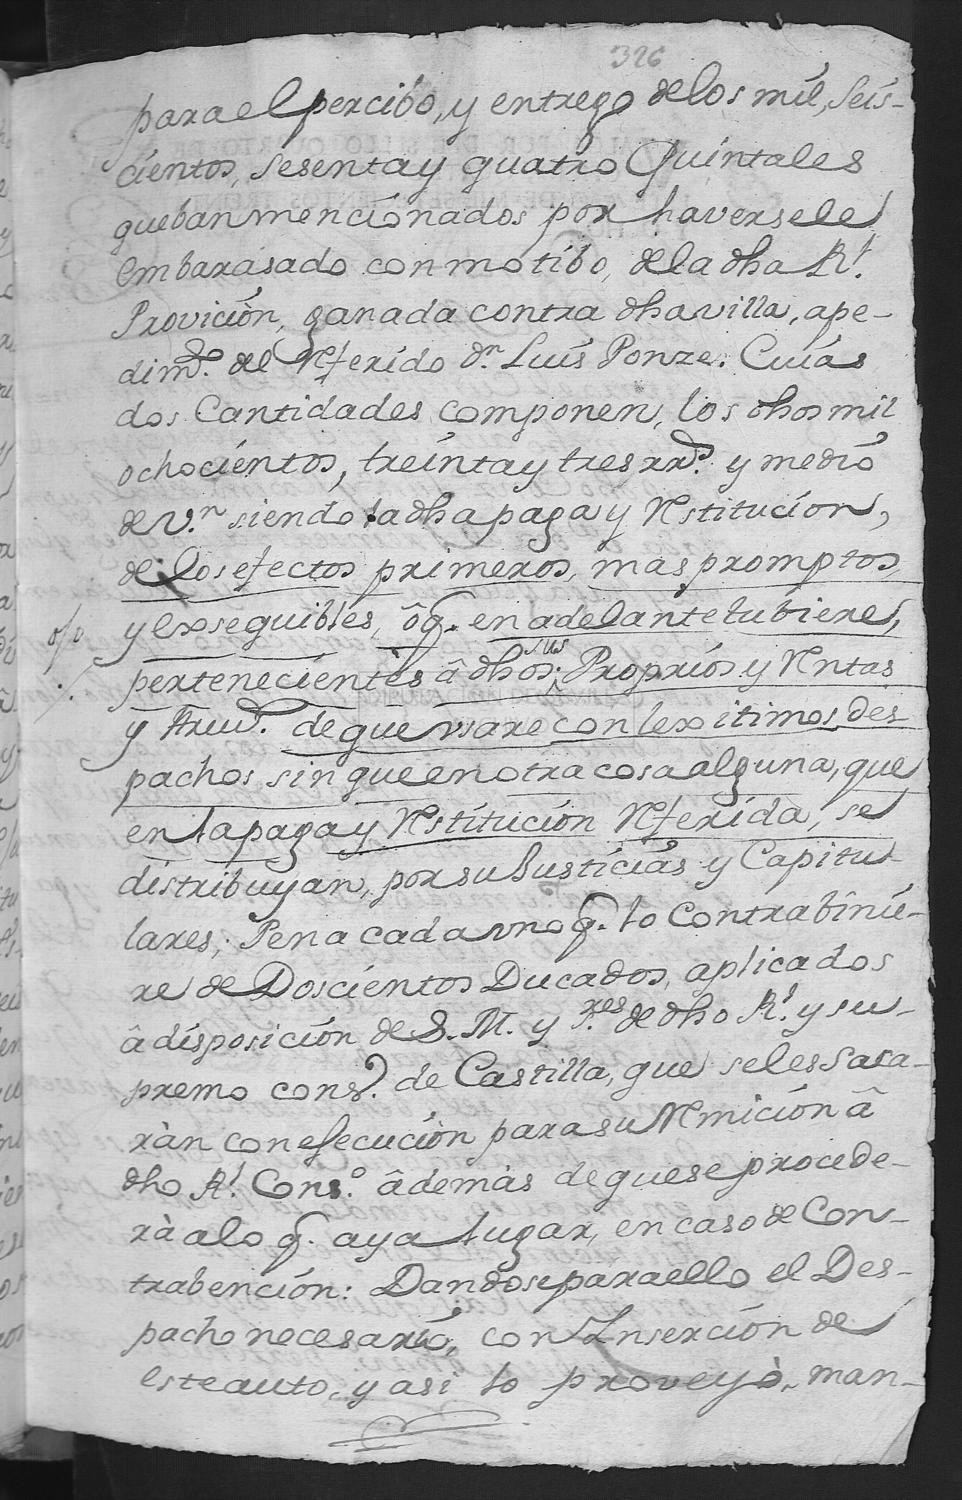 326
para el percibo, y entrego de los mil, Seis-
cientos, sesenta y quatro Quintales
que ban mencionados por haversele
embarasado con motibo, de la dha Rl.
Provición, ganada contra dha villa, a pe-
dimto. del Referido dn. Luis Ponze. Cuias
dos Cantidades componen, los dhos mil
ochocientos, treinta y tres rrs. y medio
de v.n siendo la dha paga y Restitución,
de los efectos primeros, mas promptos,
y exseguibles, ô q. en adelante tubiere,
pertenecientes â dhos, sus Proprios y Rentas
y Arvs. de que vsare con lexitimos des
pachos sin que en otra cosa alguna, que
en la paga y Restitución Referida, se
distribuyan, por su Justicias y Capitu-
lares; Pena cada vno q. lo Contrabinie-
re de Doscientos Ducados, aplicados
â disposición de S. M. y Sres de dho Rl. y su-
premo consº. de Castilla, que se les saca-
ràn con efecución para su Remición â
dho Rl. Consº. âdemàs de que se procede-
rà a lo q. aya lugar, en caso de Con-
trabención: Dandose para ello el Des-
pacho necesario, con Inserción de
este auto, y asi lo proveyò, man-